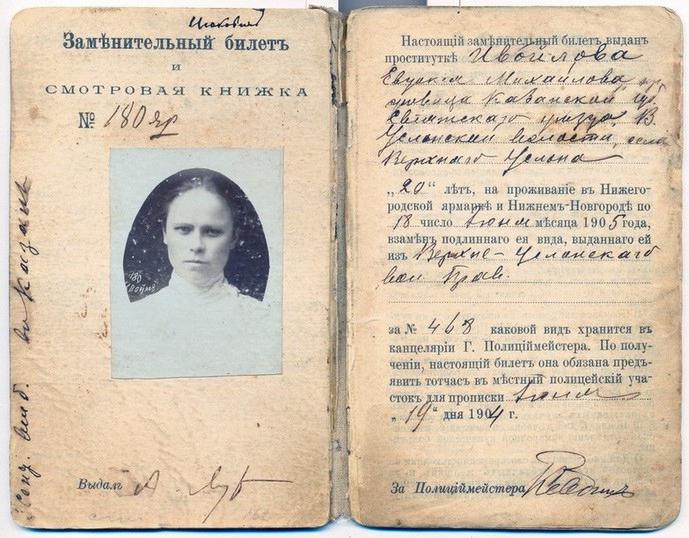 Замѣнительный билетъ
и
СМОТРОВАЯ КНИЖКА
№ 180 яр
180
Выдалъ
Настоящій замѣнительный билетъ выданъ
проституткѣ Ивойлова
Евдокия Михайлова
Казанской губ.
Свіяжскаго уѣзда, В.
Услонской волости, села
Верхняго Услона
„20“ лѣтъ, на проживаніе въ Нижего-
родской ярмаркѣ и Нижнемъ-Новгородѣ по
18 число Іюня мѣсяца 1905 года,
взамѣнъ подлиннаго ея вида, выданнаго ей
изъ Верхне-Услонскаго
вол. Прав.
за № 468 каковой видъ хранится въ
канцеляріи Г. Полиціймейстера. По полу-
ченіи, настоящій билетъ она обязана предъ-
явить тотчасъ въ мѣстный полицейскій уча-
стокъ для прописки Іюня
„19“ дня 1904 г.
За Полиціймейстера